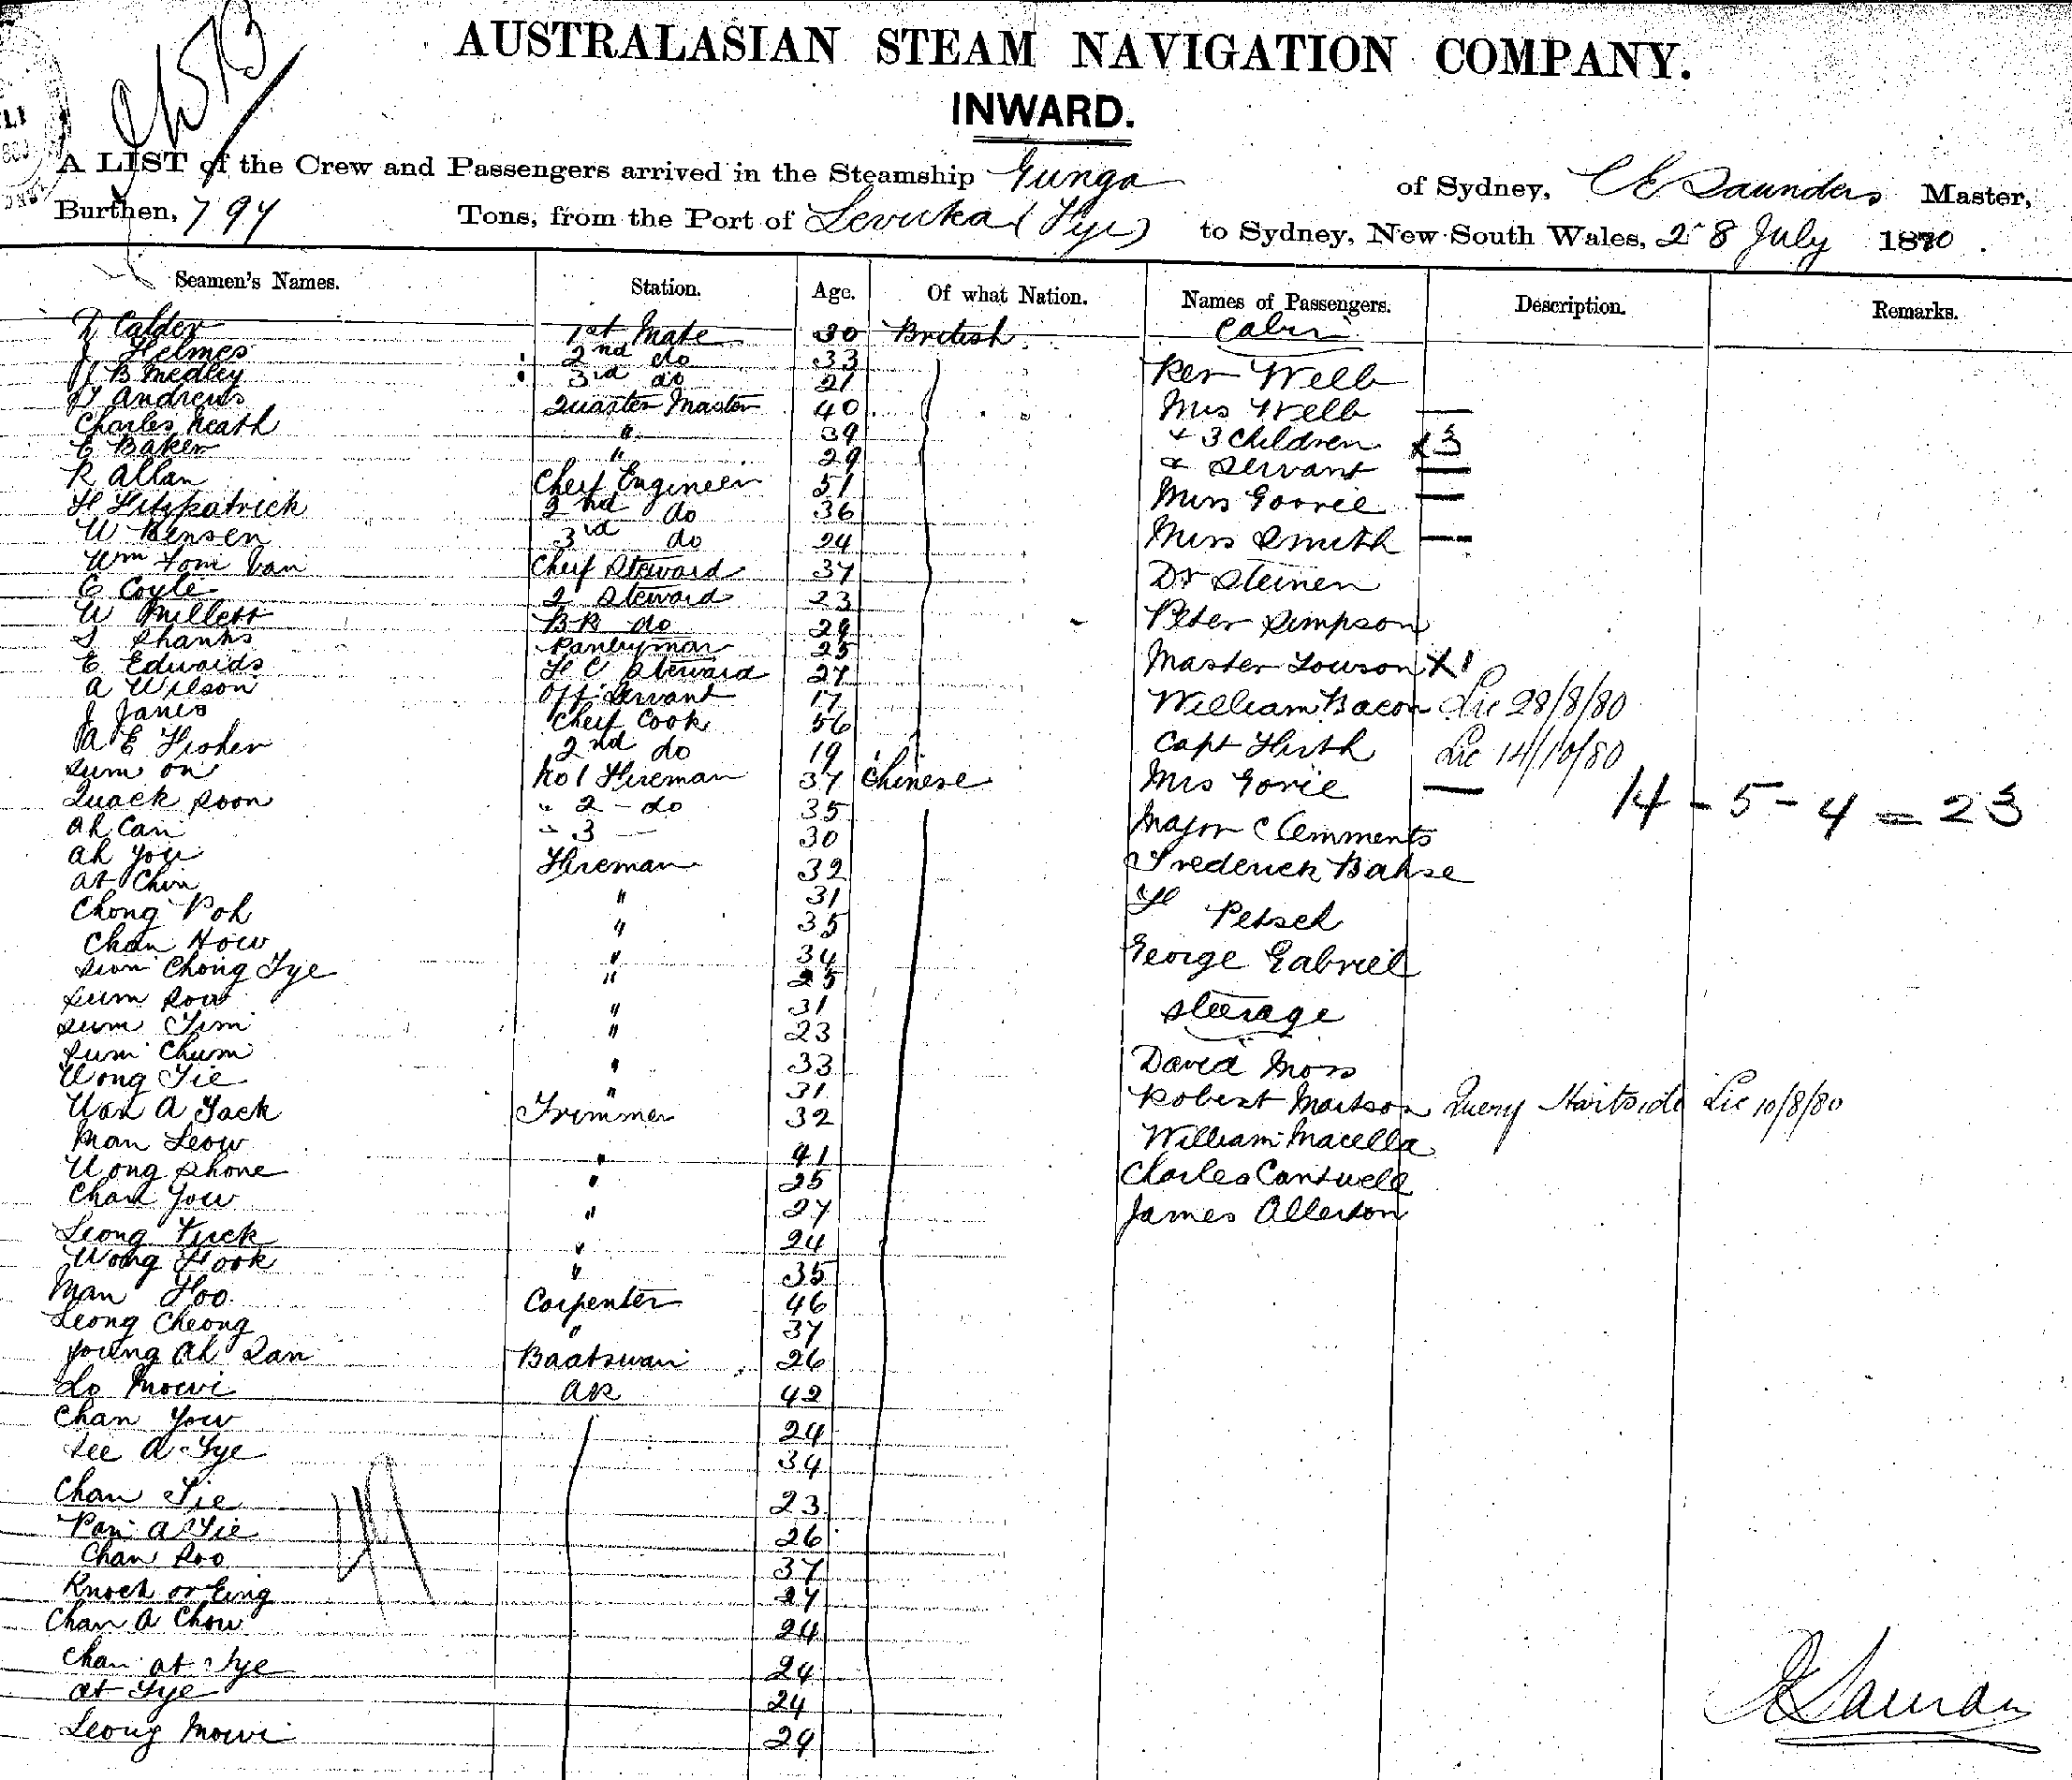 AUSTRALASIAN STEAM NAVIGATION COMPANY.
INWARD.
A LIST of the Crew and Passengers arrived in the Steamship Gunga of Sydney, C E Saunders Master,
Burthen, 794 Tons, from the Port of Levuka (Fiji) to Sydney, New South Wales, 28 July 1880.
Seamen's Names. Station. Age. Of what Nation. Names of Passengers. Description. Remarks.
Calder 1st Mate 30 British Cabin
J Helmes 2nd do 33
J B Medley 3rd do 21 Rev Webb
Andrews Quarter Master 40 Mrs Webb —
Charles Neath " 39 + 3 Children x 3
E Baker " 29 + Servant —
R Allan Cheif Engineer 51 Miss Goorie —
H Fitzpatrick 2nd do 36
W Bensen 3rd do 24 Miss Smith —
Wm Tom Van Cheif Steward 37 Dr Steinen
E Coyle 2 Steward 23
W Millett BR do 29 Peter Simpson
S Shanks Pantryman 25
E Edwards F C Steward 27 Master Lowson x 1
A Wilson Off Servant 17 William Bacon Lic 28/8/80
J Janes Cheif Cook 56
A E Fisher 2nd do 19 Capt Hirth Lic 14/10/80
Sum on No 1 Fireman 37 Chinese Mrs Gorie —
14 - 5 - 4 = 23
Quack Soon " 2 - do 35
Ah Can " 3 — 30 Major Clemments
Ah You Fireman 32 Frederick Bahse
At Chin " 31
Chong Poh " 35 H Petsch
Chan How " 34 George Gabriel
Sum Chong Tye " 25
Sum Sow " 31 Steerage
Sum Tim " 23
Sum Chum " 33 David Moss
Wong Tie " 31 Robert Maitson Query Hartside Lic 10/8/80
Wan A Jack Trimmer 32
Man Leow " 41 William Macella
Wong Shone " 25 Charles Cantwell
Chan Yow " 27 James Allerton
Leong Tuck " 24
Wong Hook " 35
Man Hoo Carpenter 46
Leong Cheong " 37
Young Ah San Boatswain 26
Lo Mowi AB 42
Chan Yow 24
See A Tye 34
Chan Tie 23
Pan A Tie 26
Chan Soo 37
Knock or Eing 27
Chan A Chow 24
Chan at Tye 24
at Tye 24
Leong Mowi 29